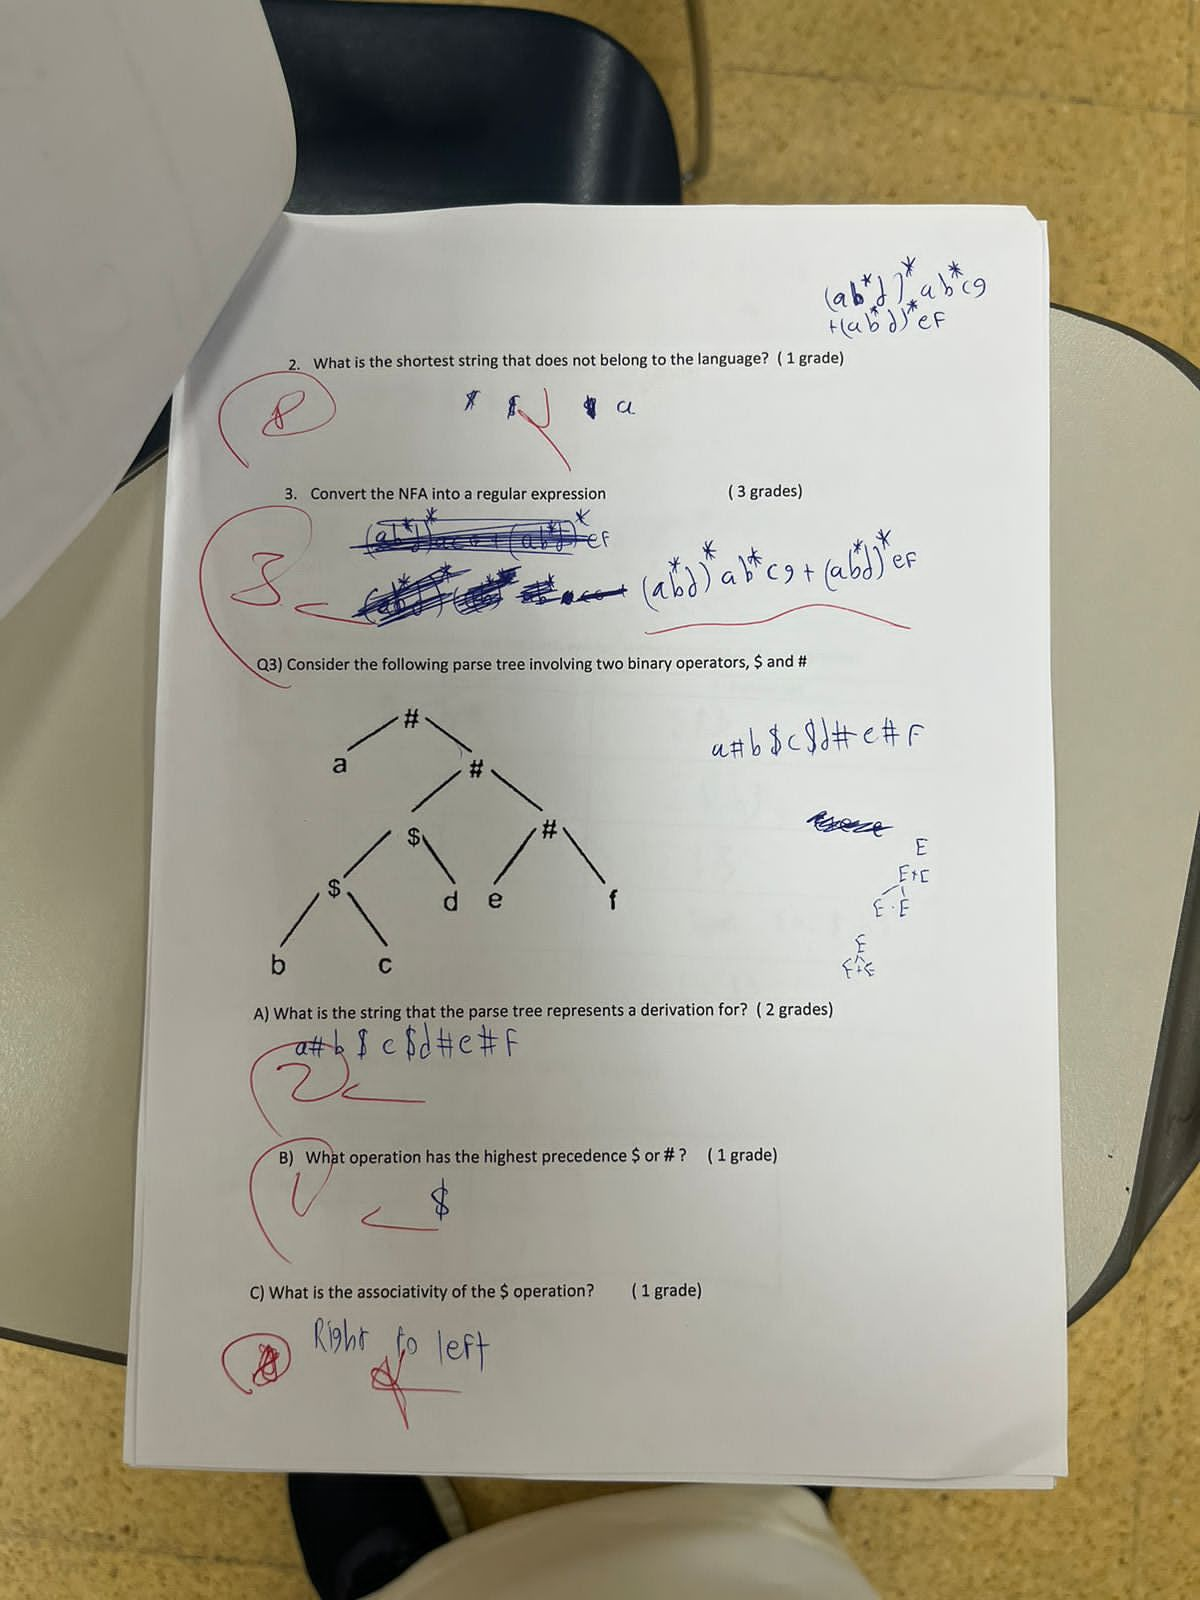 (ab*d)*ab*cg
+(ab*d)*ef
2. What is the shortest string that does not belong to the language? ( 1 grade)
a
3. Convert the NFA into a regular expression ( 3 grades)
3
(ab*d)*ab*cg + (ab*d)*ef
Q3) Consider the following parse tree involving two binary operators, $ and #
#
a#b$c$d#e#f
a #
$ #
E
E+E
$ d e f
E·E
b c
E
E+E
A) What is the string that the parse tree represents a derivation for? ( 2 grades)
a#b$c$d#e#f
2
B) What operation has the highest precedence $ or # ? ( 1 grade)
1
$
C) What is the associativity of the $ operation? ( 1 grade)
Right to left